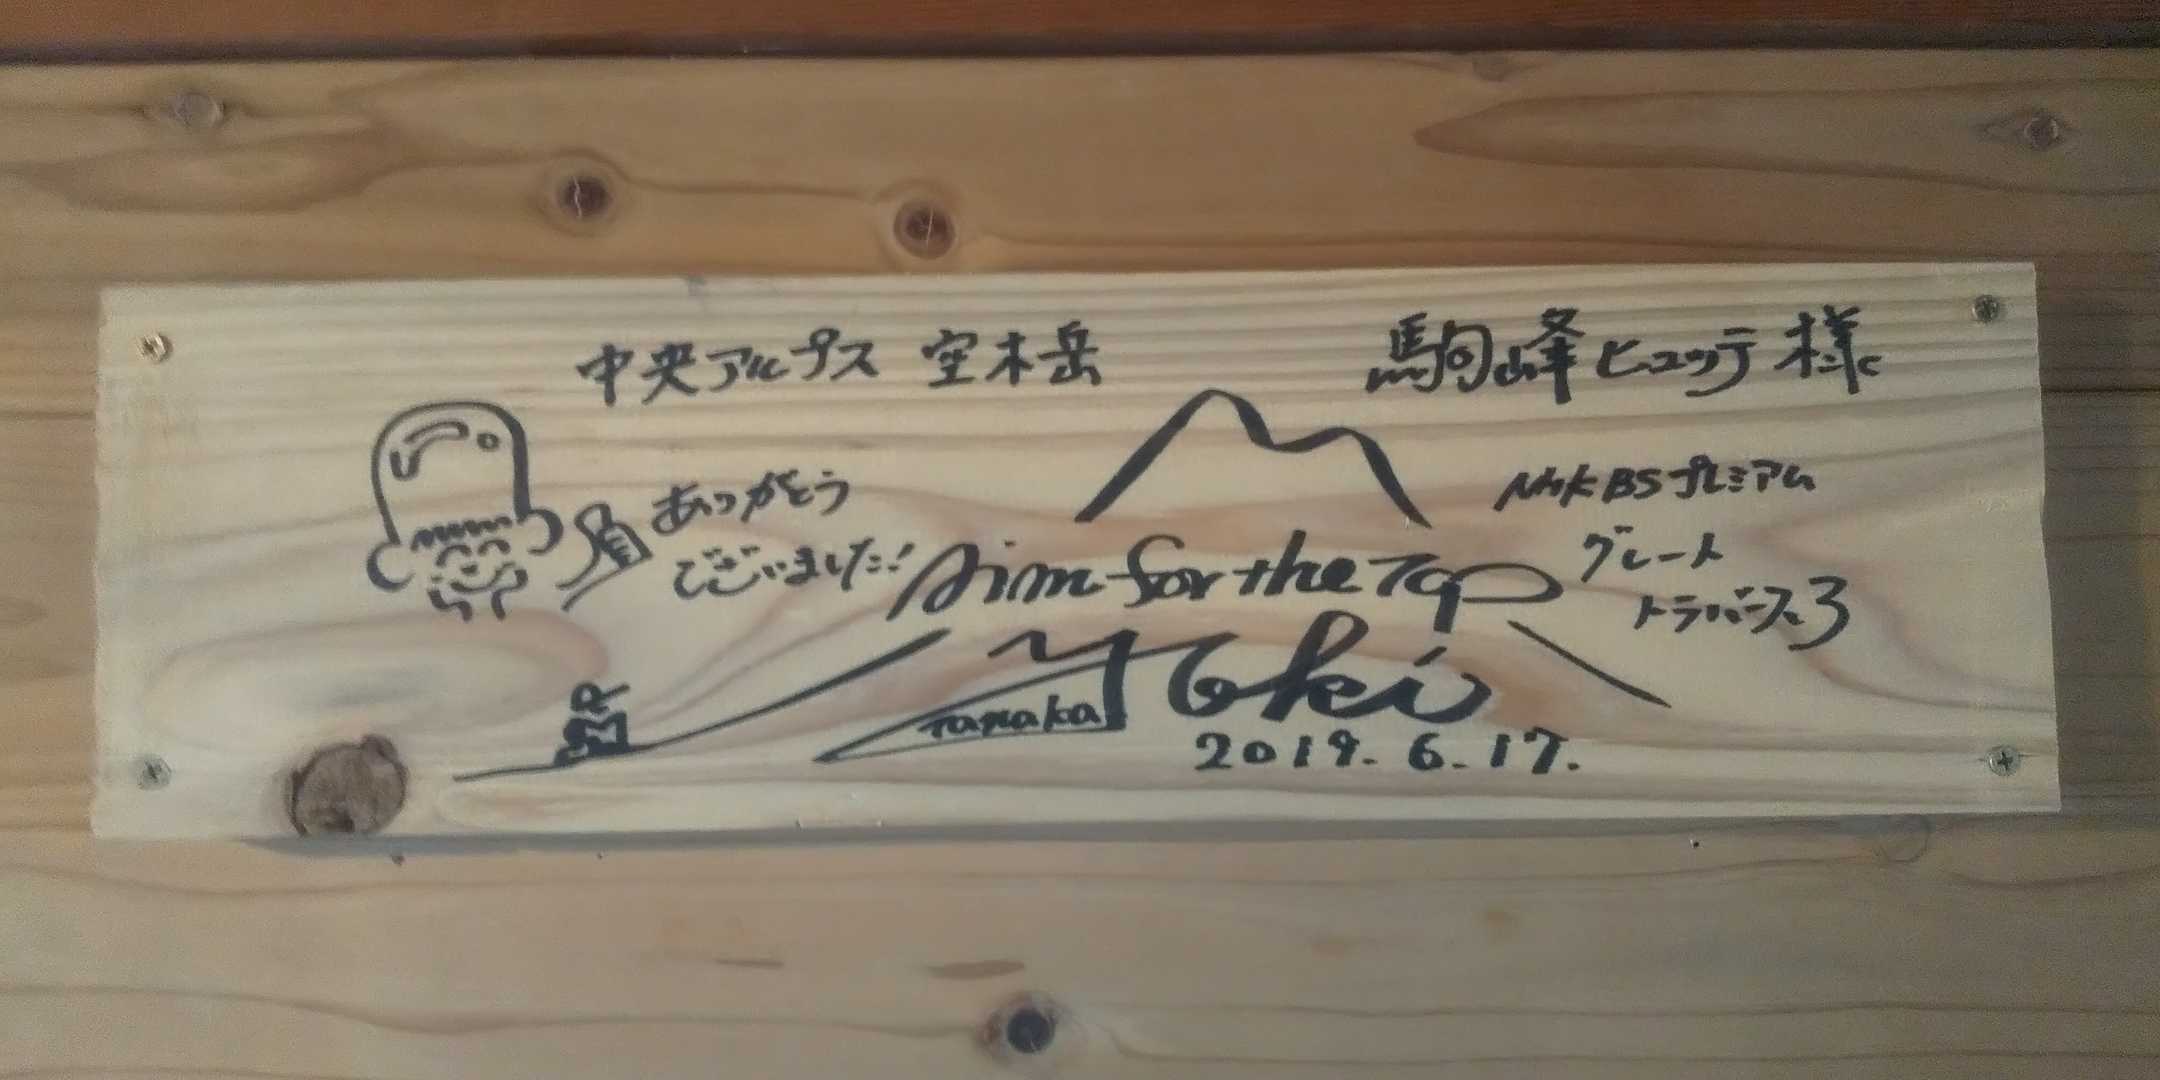 中央アルプス 空木岳
駒峰ヒュッテ様
ありがとう
ございました!
NHK BSプレミアム
グレート
トラバース3
Aim for the Top
Yoki
Tanaka
2019.6.17.